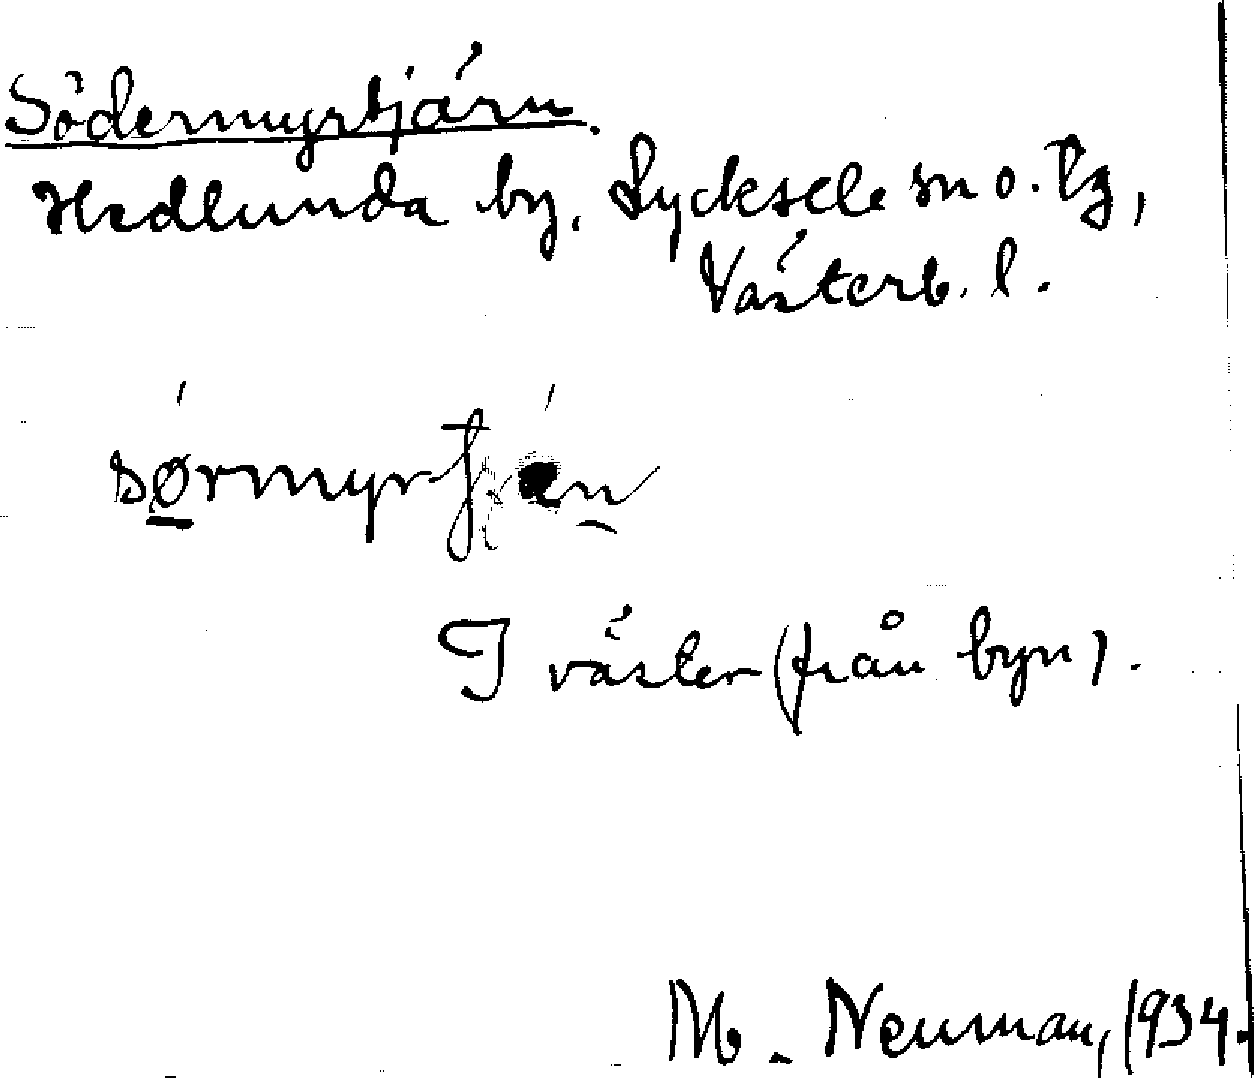 Södermyrtjärn.
Hedlunda by, Lycksele sn o. lg,
Västerb. l.
I väster (från byn).
M. Neuman, 1934.